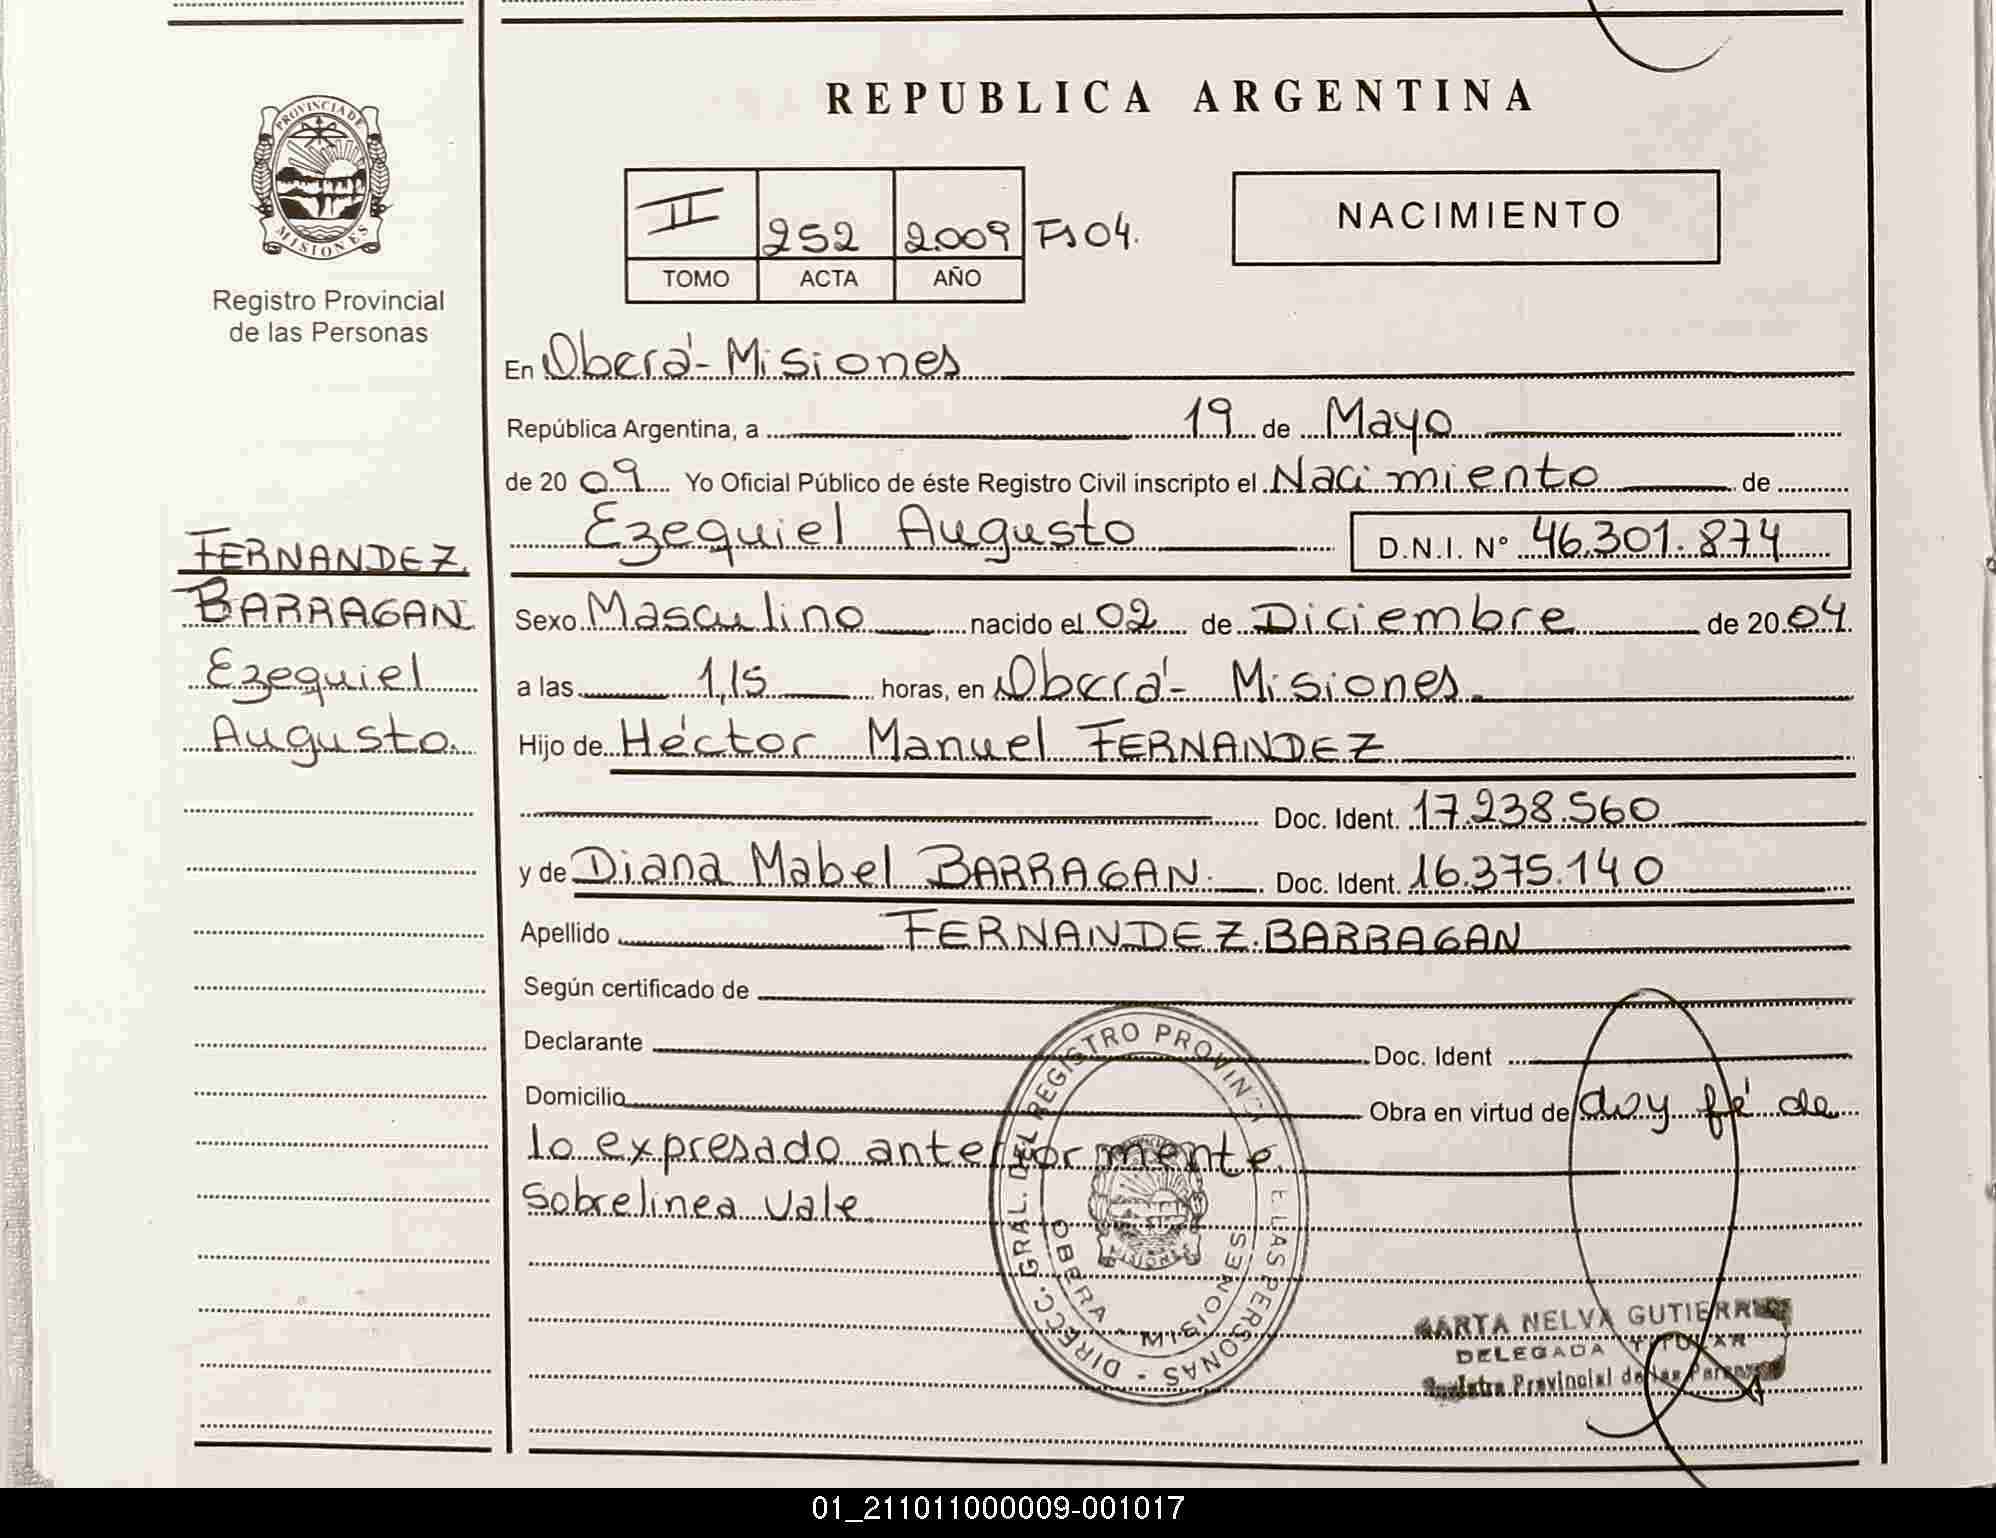 REPUBLICA ARGENTINA
PROVINCIA DE MISIONES
Registro Provincial
de las Personas
II 252 2009 Fs 04.
TOMO ACTA AÑO
NACIMIENTO
En Oberá - Misiones
República Argentina, a 19 de Mayo
de 20 09 Yo Oficial Público de éste Registro Civil inscripto el Nacimiento de
Ezequiel Augusto D.N.I. N° 46.301.874
FERNANDEZ
BARRAGAN
Ezequiel
Augusto.
Sexo Masculino nacido el 02 de Diciembre de 20 04.
a las 1,15 horas, en Oberá - Misiones.
Hijo de Héctor Manuel FERNANDEZ
Doc. Ident. 17.238.560
y de Diana Mabel BARRAGAN. Doc. Ident. 16.375.140
Apellido FERNANDEZ BARRAGAN
Según certificado de
Declarante Doc. Ident
Domicilio Obra en virtud de doy fé de
lo expresado anteriormente.
Sobrelinea vale.
DIRECC. GRAL. DEL REGISTRO PROVINCIAL DE LAS PERSONAS -
OBERA - MISIONES
MISIONES
MARTA NELVA GUTIERREZ
DELEGADA TITULAR
Registro Provincial de las Personas
01_211011000009-001017